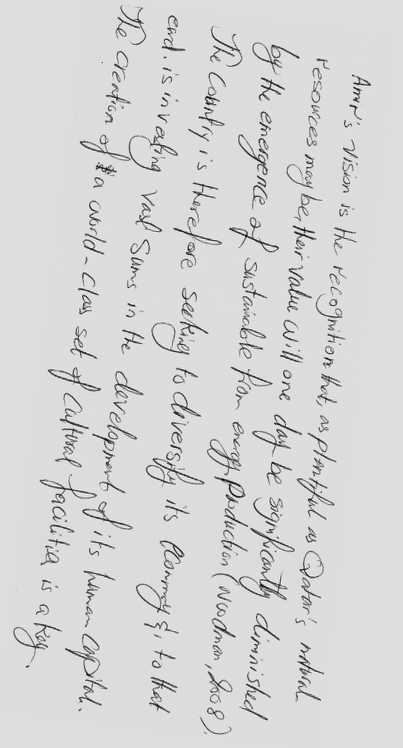 Amir's Vision is the recognition that as plentiful as Qatar's natural
resources may be, their value will one day be significantly diminished
by the emergence of sustainable from energy production (Woodman, 2008).
The Country is therefore seeking to diversify its Economy &, to that
end. is investing vast sums in the development of its human capital.
The Creation of a world-class set of cultural facilities is a key.